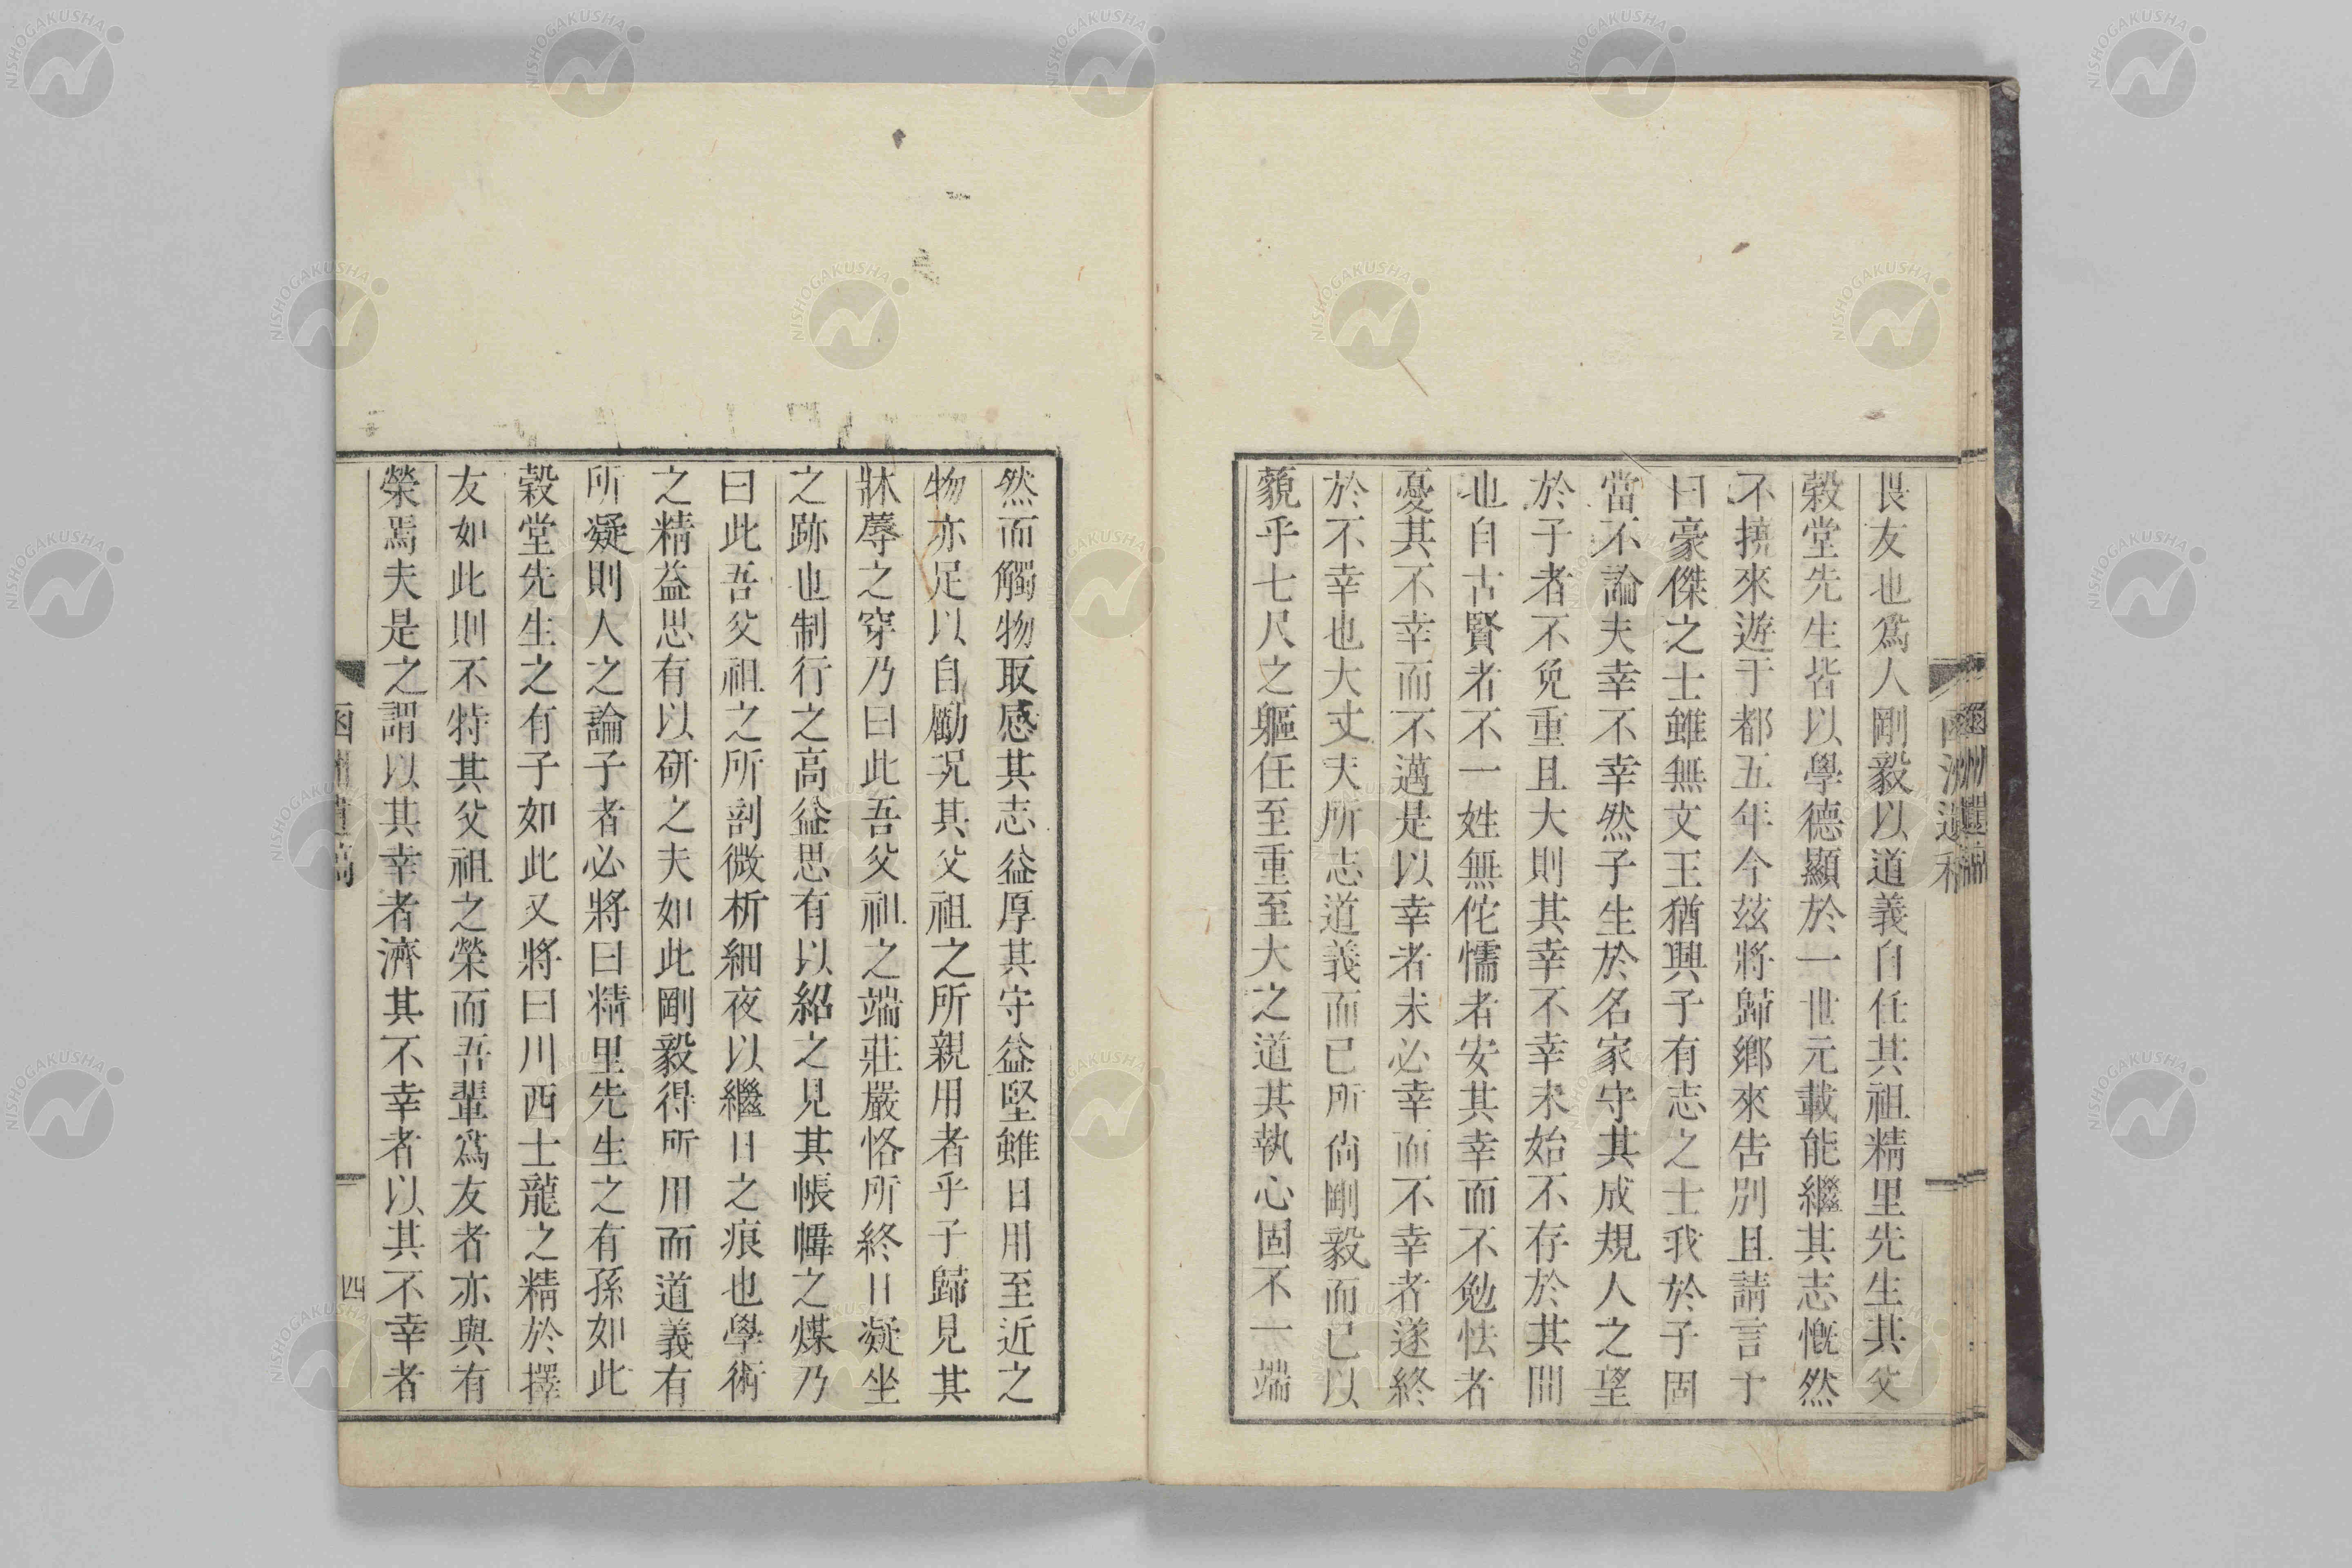 畏友也爲人剛毅以道義自任其祖精里先生其父
榖堂先生皆以學德顯於一世元載能繼其志慨然
不撓來遊于都五年今茲將歸鄉來告別且請言于
曰豪傑之士雖無文王猶興子有志之士我於子固
當不論夫幸不幸然子生於名家守其成規人之望
於子者不免重且大則其幸不幸未始不存於其間
也自古賢者不一姓無佗懦者安其幸而不勉怯者
憂其不幸而不邁是以幸者未必幸而不幸者遂終
於不幸也大丈夫所志道義而已所尙剛毅而已以
藐乎七尺之軀任至重至大之道其執心固不一端
然而觸物取感其志益厚其守益堅雖日用至近之
物亦足以自勵況其父祖之所親用者乎子歸見其
牀蓐之穿乃曰此吾父祖之端莊嚴恪所終日凝坐
之跡也制行之高益思有以紹之見其帳幬之煤乃
曰此吾父祖之所剖微析細夜以繼日之痕也學術
之精益思有以硏之夫如此剛毅得所用而道義有
所凝則人之論子者必將曰精里先生之有孫如此
榖堂先生之有子如此又將曰川西士龍之精於擇
友如此則不特其父祖之榮而吾輩爲友者亦與有
榮焉夫是之謂以其幸者濟其不幸者以其不幸者
函洲遺稿
四